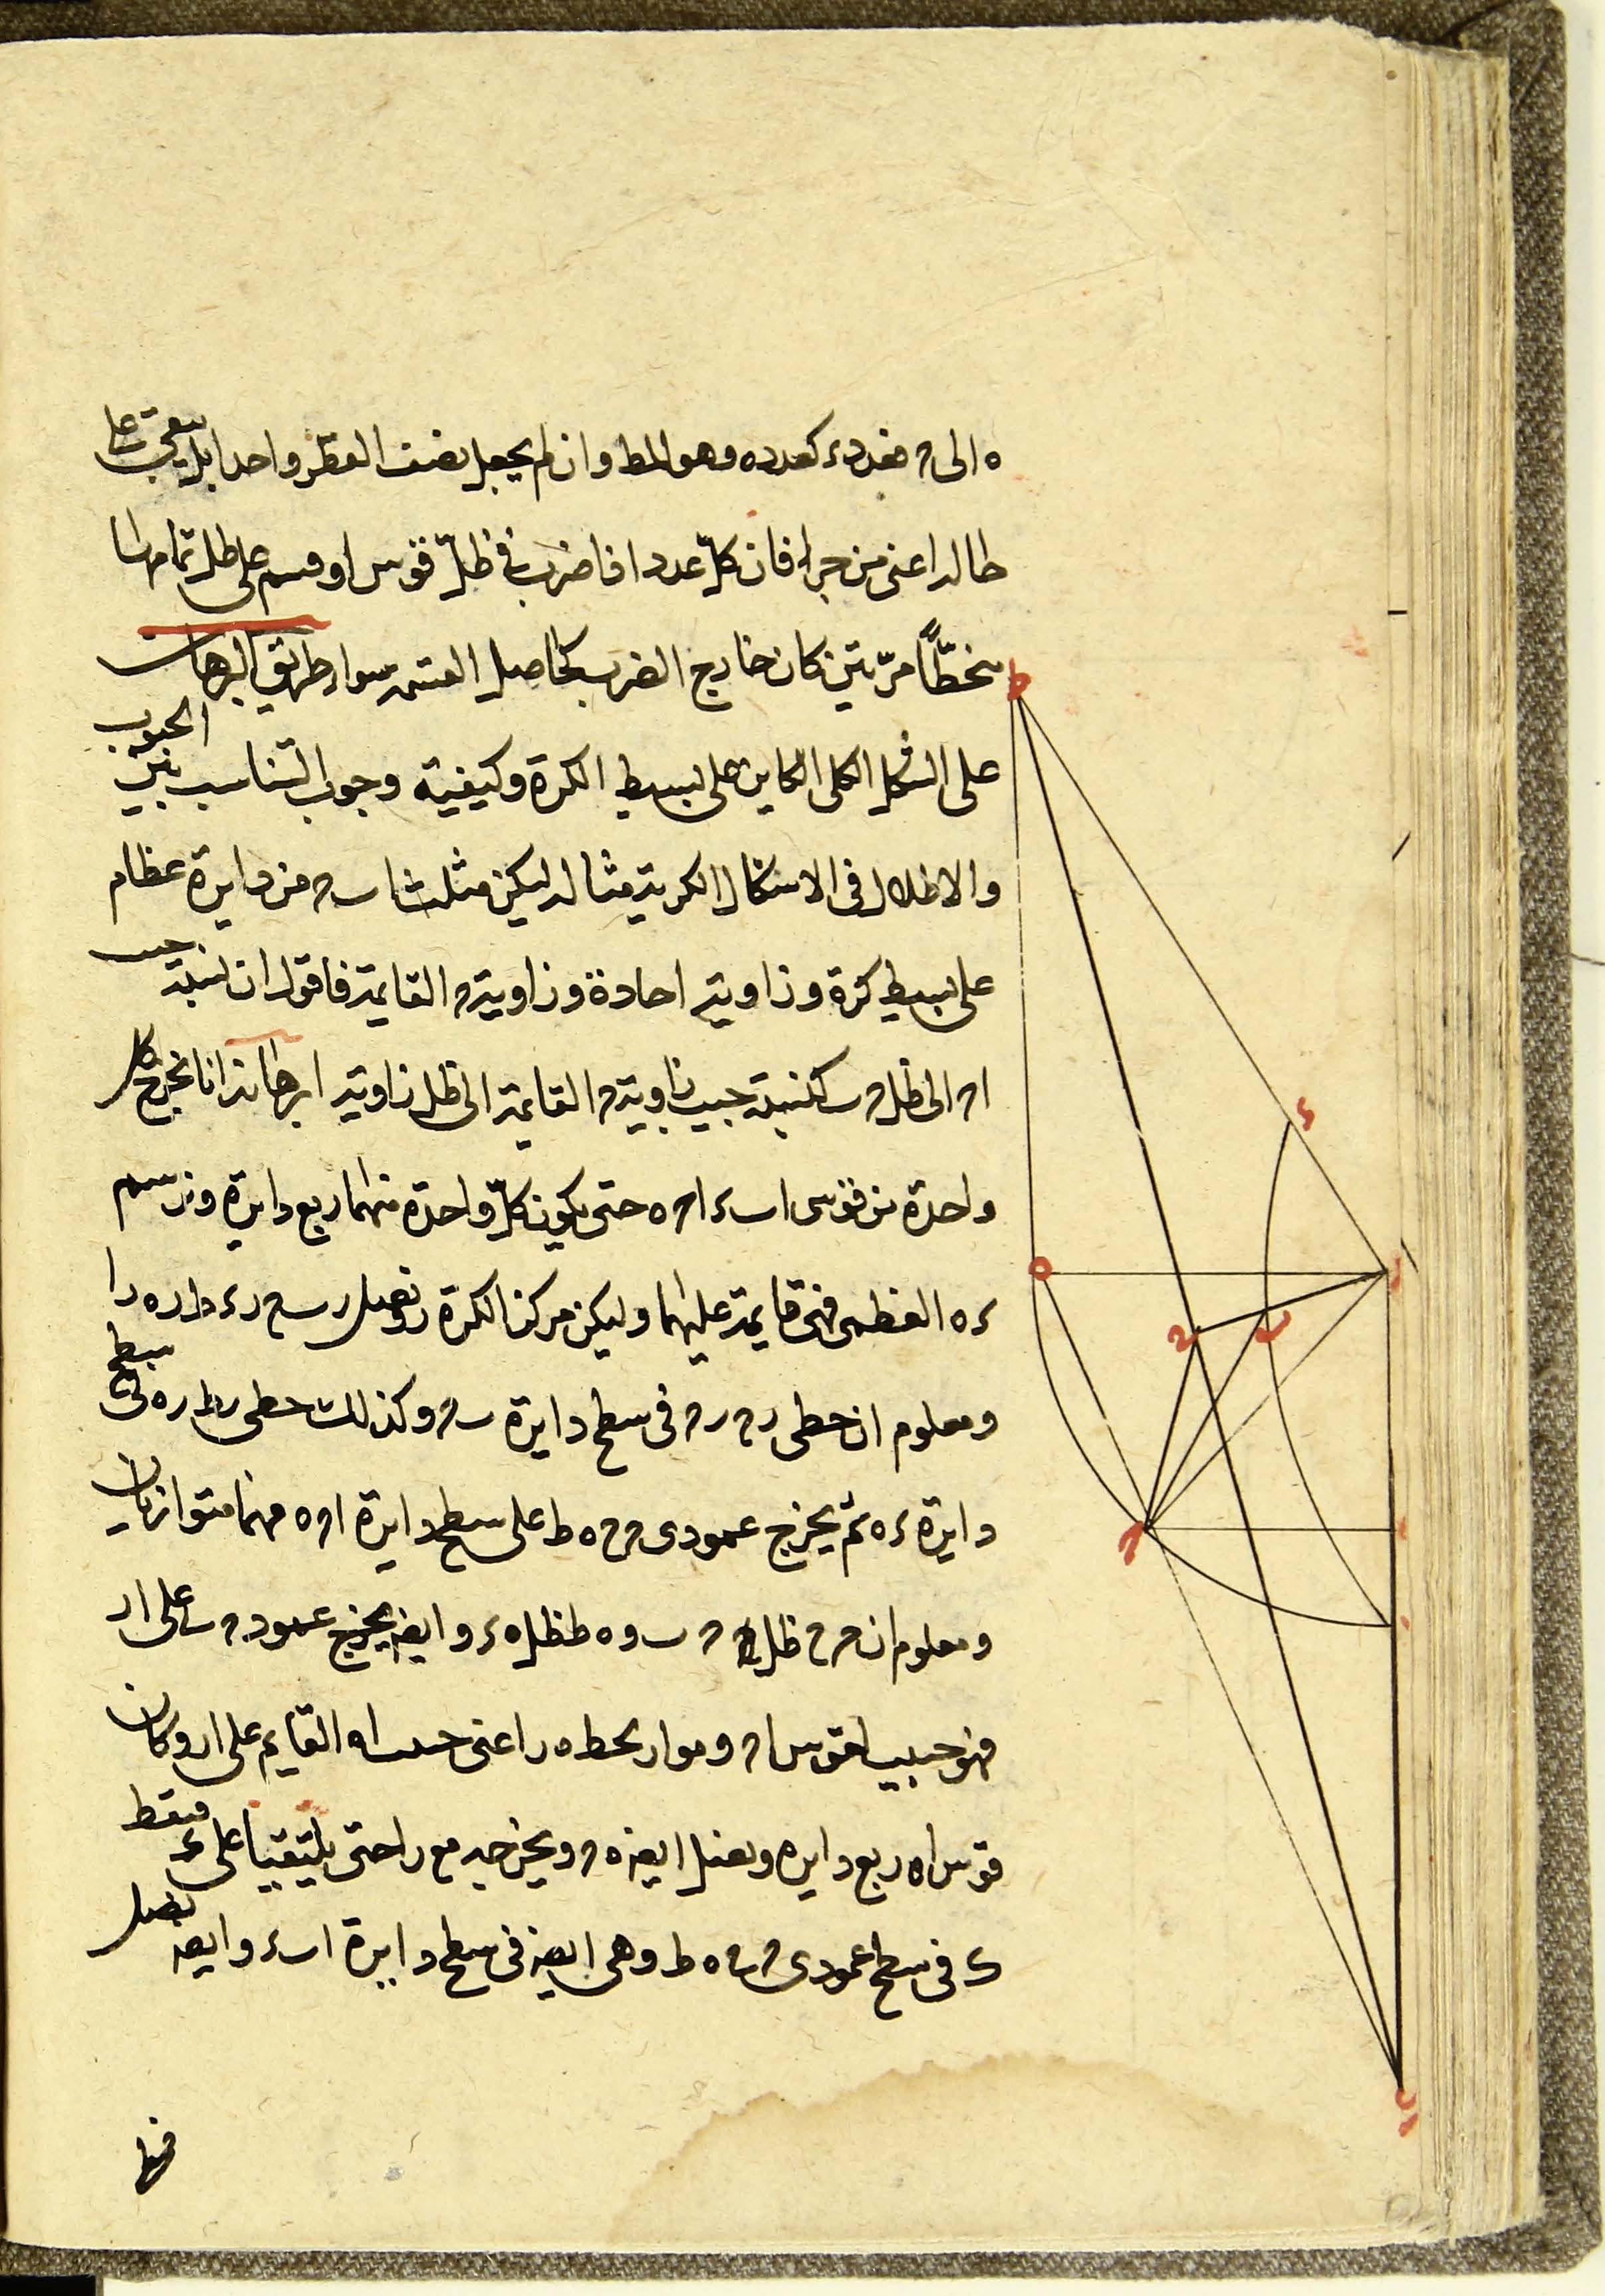 ه الى ح مفرد ء كعدد ه وهو المط وان لم يجعل نصف القطر واحدا بل يبقى على
حاله اعنى من جزا فان كلّ عدد اذا ضرب فى ظلّ قوس او قسم على ظل تمامها
منحطّاً مرّتين كان خارج الضرب كحاصل القسمة سواء طريق البرهان
على الشكل الكلى الكاين على بسيط الكرة وكيفية وجوب التناسب بين الجيوب
والاظلال فى الاشكال الكرية مثاله ليكن مثلث ا ب ح من دايرة عظام
على بسيط كرة وزاوية ا حادة وزاوية ح القايمة فاقول ان نسبة جيب
ا ح الى ظل ح ب كنسبة جيب زاوية ح القايمة الى ظل زاوية ا برهانه انا نخرج كل
واحدة من قوسى ا ب ء ا ح ه حتى يكون كلّ واحدة منهما ربع دايرة ونرسم
ء ه العظمى فهى قايمة عليهما وليكن مركز الكرة ر ونصل ر ب ح ر ء ط ر ه ر ا
ومعلوم ان خطى ر ح ر ح فى سطح دايرة ب ح وكذلك خطى ر ط ر ه فى سطح
دايرة ء ه ثم يخرج عمودى ح ح ه ط على سطح دايرة ا ح ه فهما متوازيان
ومعلوم ان ح ح ظل ح ب و ه ط ظل ه ء وايضا يخرج عمود ح ى على ا ر
فهو جيب لقوس ا ح وموار لخط ه ر اعنى جيب ا ه القايم على ا ر وكان
قوس ا ه ربع دايره ونصل ايضا ه ح ويخرجه مع ر ا حتى يلتقيا على ك فنقط
ك فى سطح عمودى ح ح ه ط وهى ايضا فى سطح دايرة ا ب ء وايضا نصل
فنها
ط
ء
ا
ه
ح
ب
ح
ى
ر
ك